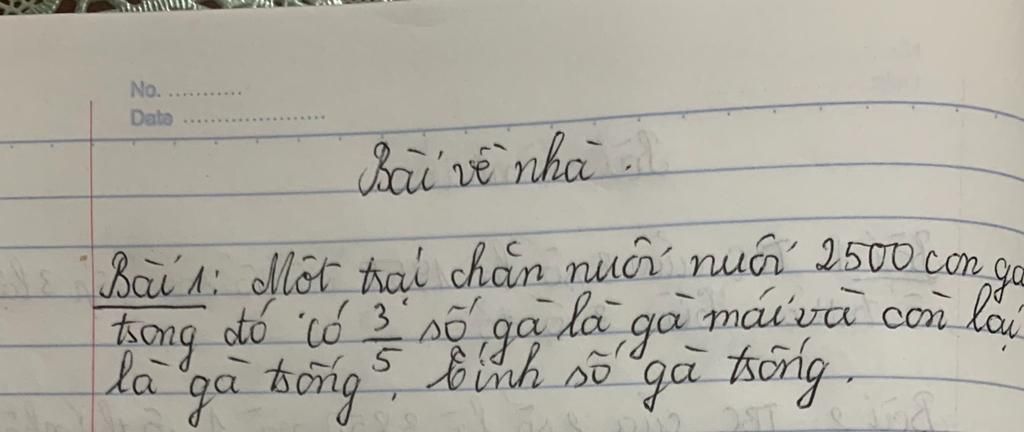 No. ...........
Date ......................
Bài về nhà.
Bài 1: Một trại chăn nuôi nuôi 2500 con gà
trong đó có 3/5 số gà là gà mái và còn lại
là gà trống. Tính số gà trống.